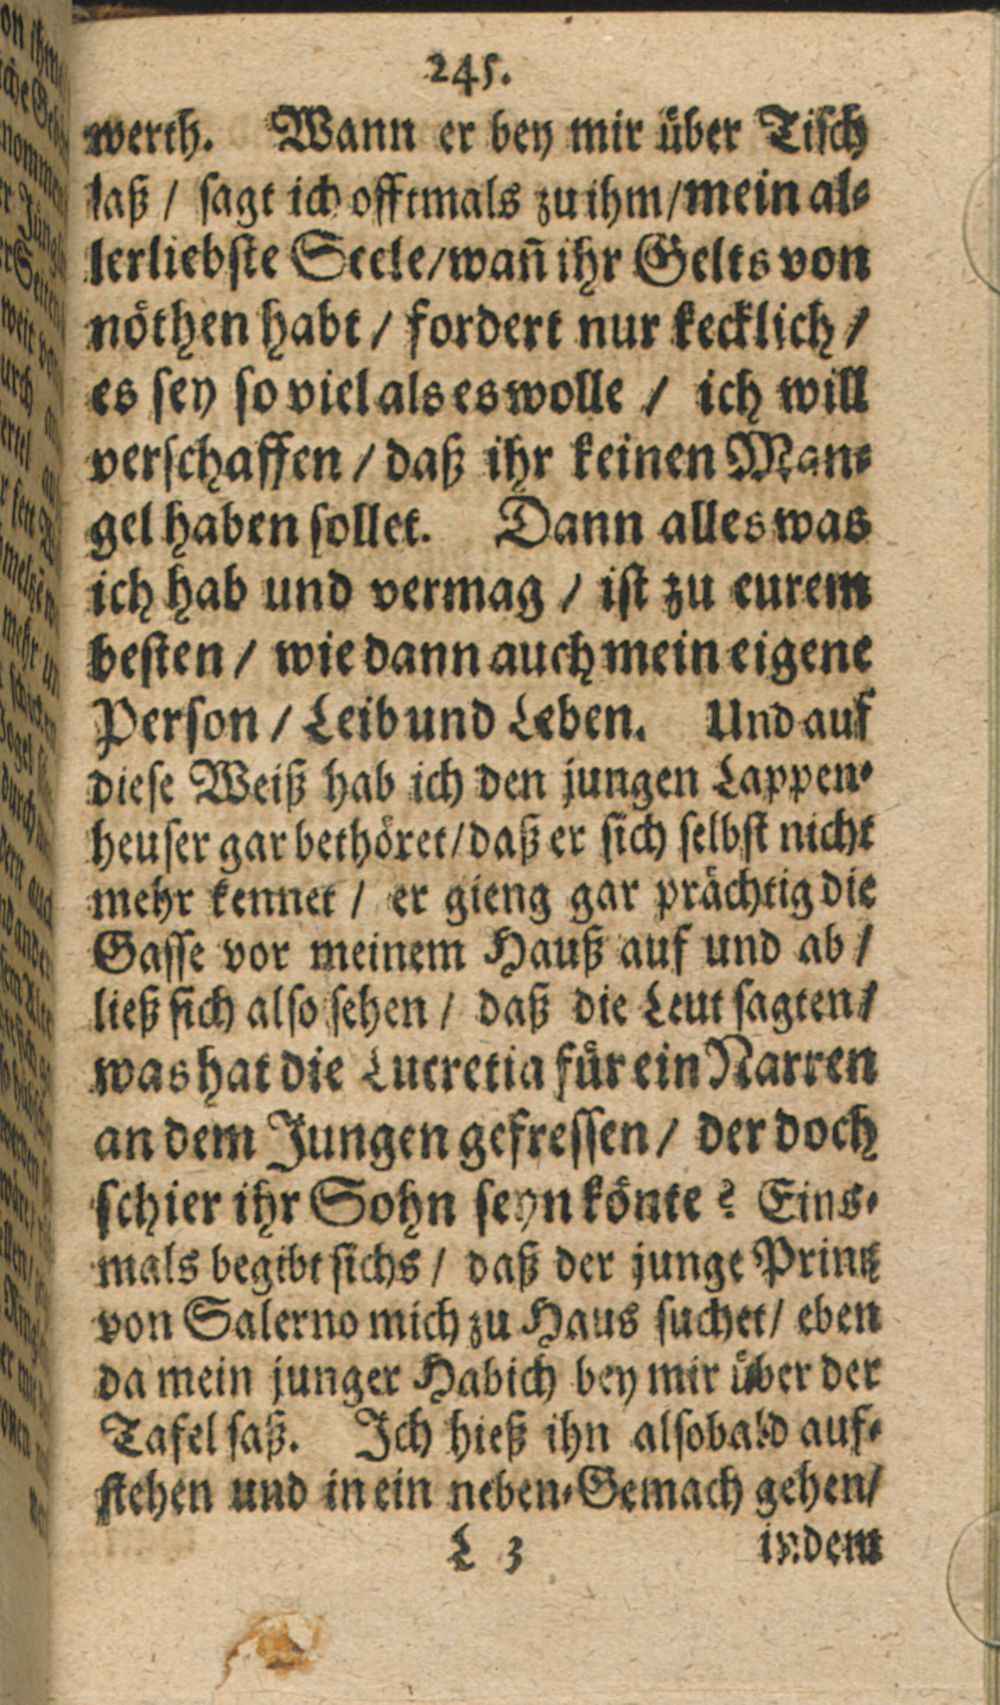 245.
werth. Wann er bey mir über Tisch
saß / sagt ich offtmals zu ihm / mein al-
lerliebste Seele / wañ ihr Gelts von
nöthen habt / fordert nur kecklich /
es sey so viel als es wolle / ich will
verschaffen / daß ihr keinen Man-
gel haben sollet. Dann alles was
ich hab und vermag / ist zu eurem
besten / wie dann auch mein eigene
Person / Leib und Leben. Und auf
diese Weiß hab ich den jungen Lappen-
heuser gar bethöret / daß er sich selbst nicht
mehr kennet / er gieng gar prächtig die
Gasse vor meinem Hauß auf und ab /
ließ sich also sehen / daß die Leut sagten /
was hat die Lucretia für ein Narren
an dem Jungen gefressen / der doch
schier ihr Sohn seyn könte? Eins-
mals begibt sichs / daß der junge Printz
von Salerno mich zu Haus suchet / eben
da mein junger Habich bey mir über der
Tafel saß. Ich hieß ihn alsobald auf-
stehen und in ein neben-Gemach gehen /
L 3 indem